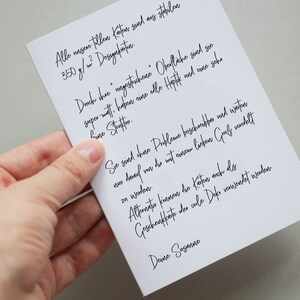 Alle unsere tollen Karten sind aus stabilem
350 g/m² Designkarton.
Durch ihre "ungestrichene" Oberfläche sind sie
super matt, haben eine edle Haptik und eine sehr
feine Struktur.
Sie sind ohne Probleme beschreibbar und warten
nur darauf von dir mit einem lieben Gruß versehrt
zu werden.
Alternativ können die Karten auch als
Geschenk oder Deko verwendet werden.
Deine Susanne